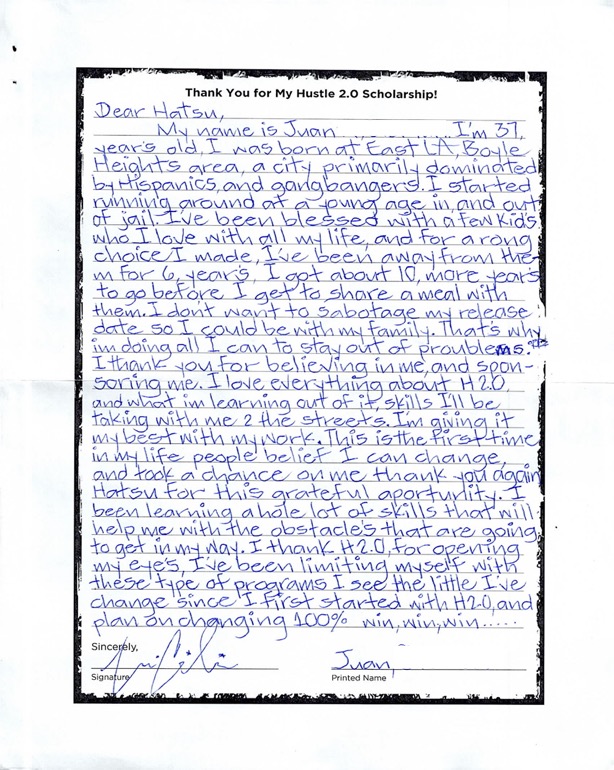 Thank You for My Hustle 2.0 Scholarship!
Dear Hatsu,
My name is Juan I'm 37,
year's old, I was born at East LA, Boyle
Heights area, a city primarily dominated
by Hispanics, and gangbangers. I started
running around at a young age in, and out
of jail. I've been blessed with a few kid's
who I love with all my life, and for a rong
choice I made, I've been away from the-
m for 6, year's, I got about 10, more year's
to go before I get to share a meal with
them. I don't want to sabotage my release
date so I could be with my family. That's why
im doing all I can to stay out of proublems.
I thank you for believing in me, and spon-
soring me. I love everything about H2.0,
and what im learning out of it, skills I'll be
taking with me 2 the streets. I'm giving it
my best with my work. This is the first time
in my life people belief I can change,
and took a chance on me thank you again
Hatsu for this grateful aporturlity. I
been learning a hole lot of skills that will
help me with the obstacle's that are going
to get in my way. I thank H2.0, for opening
my eye's, I've been limiting myself with
these type of programs I see the little I've
change since I first started with H2.0, and
plan on changing 100% win, win, win.....
Sincerely,
Juan,
Signature Printed Name